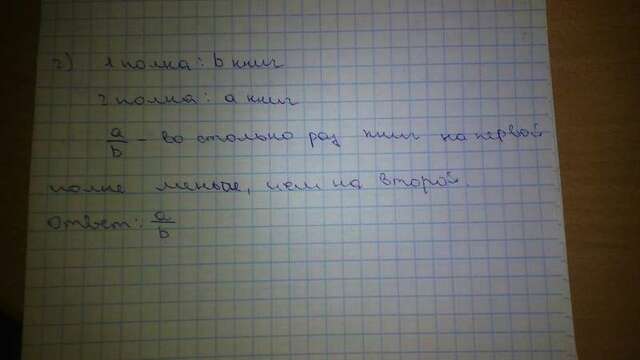 2) 1 полка: b книг
2 полка: a книг
a/b - во столько раз книг на первой
полке меньше, чем на второй.
Ответ: a/b